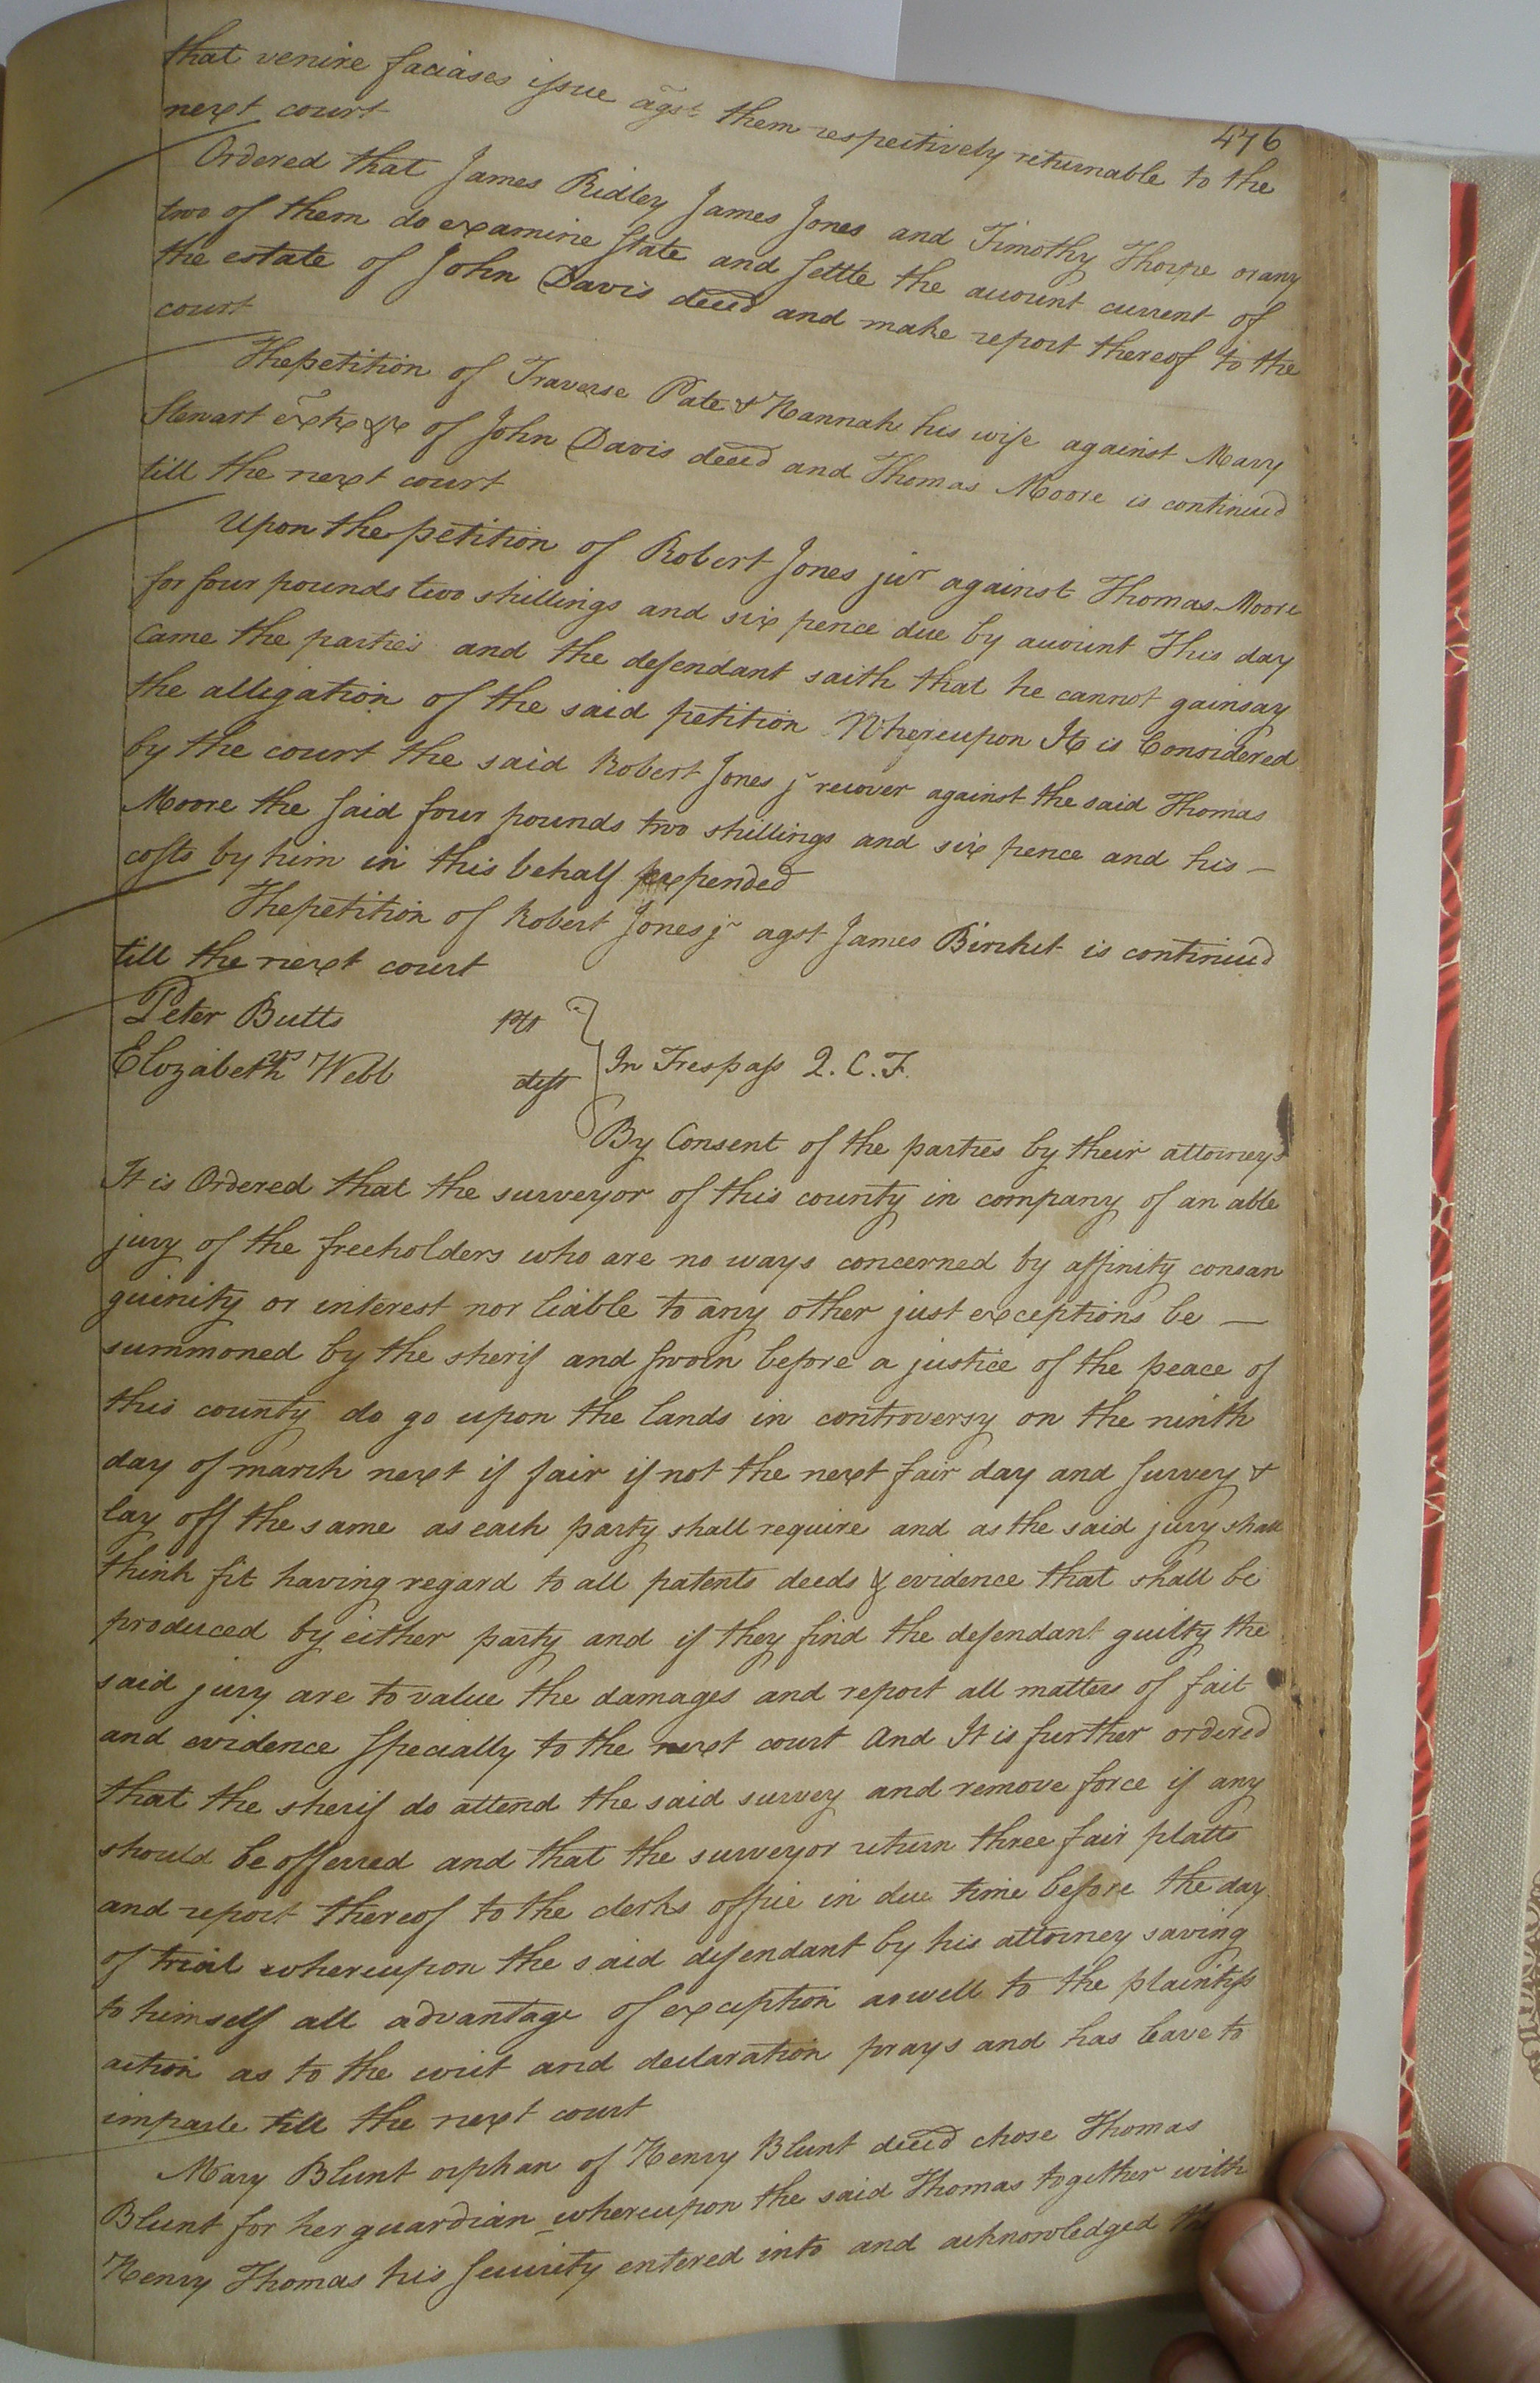 476
that venire faciases issue agst them respectively returnable to the
next court
Ordered that James Ridley James Jones and Timothy Thorpe or any
two of them do examine state and settle the account current of
the estate of John Davis decd and make report thereof to the
court
The petition of Traverse Pate & Hannah his wife against Mary
Stewart of John Davis decd and Thomas Moore is continued
till the next court
Upon the petition of Robert Jones junr against Thomas Moore
for four pounds two shillings and six pence due by account This day
came the parties and the defendant saith that he cannot gainsay
the alligation of the said petition Whereupon It is Considered
by the court the said Robert Jones jr recover against the said Thomas
Moore the said four pounds two shillings and six pence and his —
costs by him in this behalf expended
The petition of Robert Jones jr agst James Binchet is continued
till the next court
Peter Butts plt
vs
Elizabeth Webb deft
In Trespass Q. C. F.
By Consent of the parties by their attorneys
It is Ordered that the surveyor of this county in company of an able
jury of the freeholders who are no ways concerned by affinity consan
guinity or interest nor liable to any other just exceptions be —
summoned by the sherif and sworn before a justice of the peace of
this county do go upon the lands in controversy on the ninth
day of march next if fair if not the next fair day and survey &
lay off the same as each party shall require and as the said jury shall
think fit having regard to all patents deeds & evidence that shall be
produced by either party and if they find the defendant guilty the
said jury are to value the damages and report all matters of fact
and evidence specially to the next court And It is further ordered
that the sherif do attend the said survey and remove force if any
should be offerred and that the surveyor return three fair platts
and report thereof to the clerks office in due time before the day
of trial whereupon the said defendant by his attorney saving
to himself all advantage of exception as well to the plaintifs
action as to the writ and declaration prays and has leave to
imparle till the next court
Mary Blunt orphan of Henry Blunt decd chose Thomas
Blunt for her guardian whereupon the said Thomas together with
Henry Thomas his security entered into and acknowledged